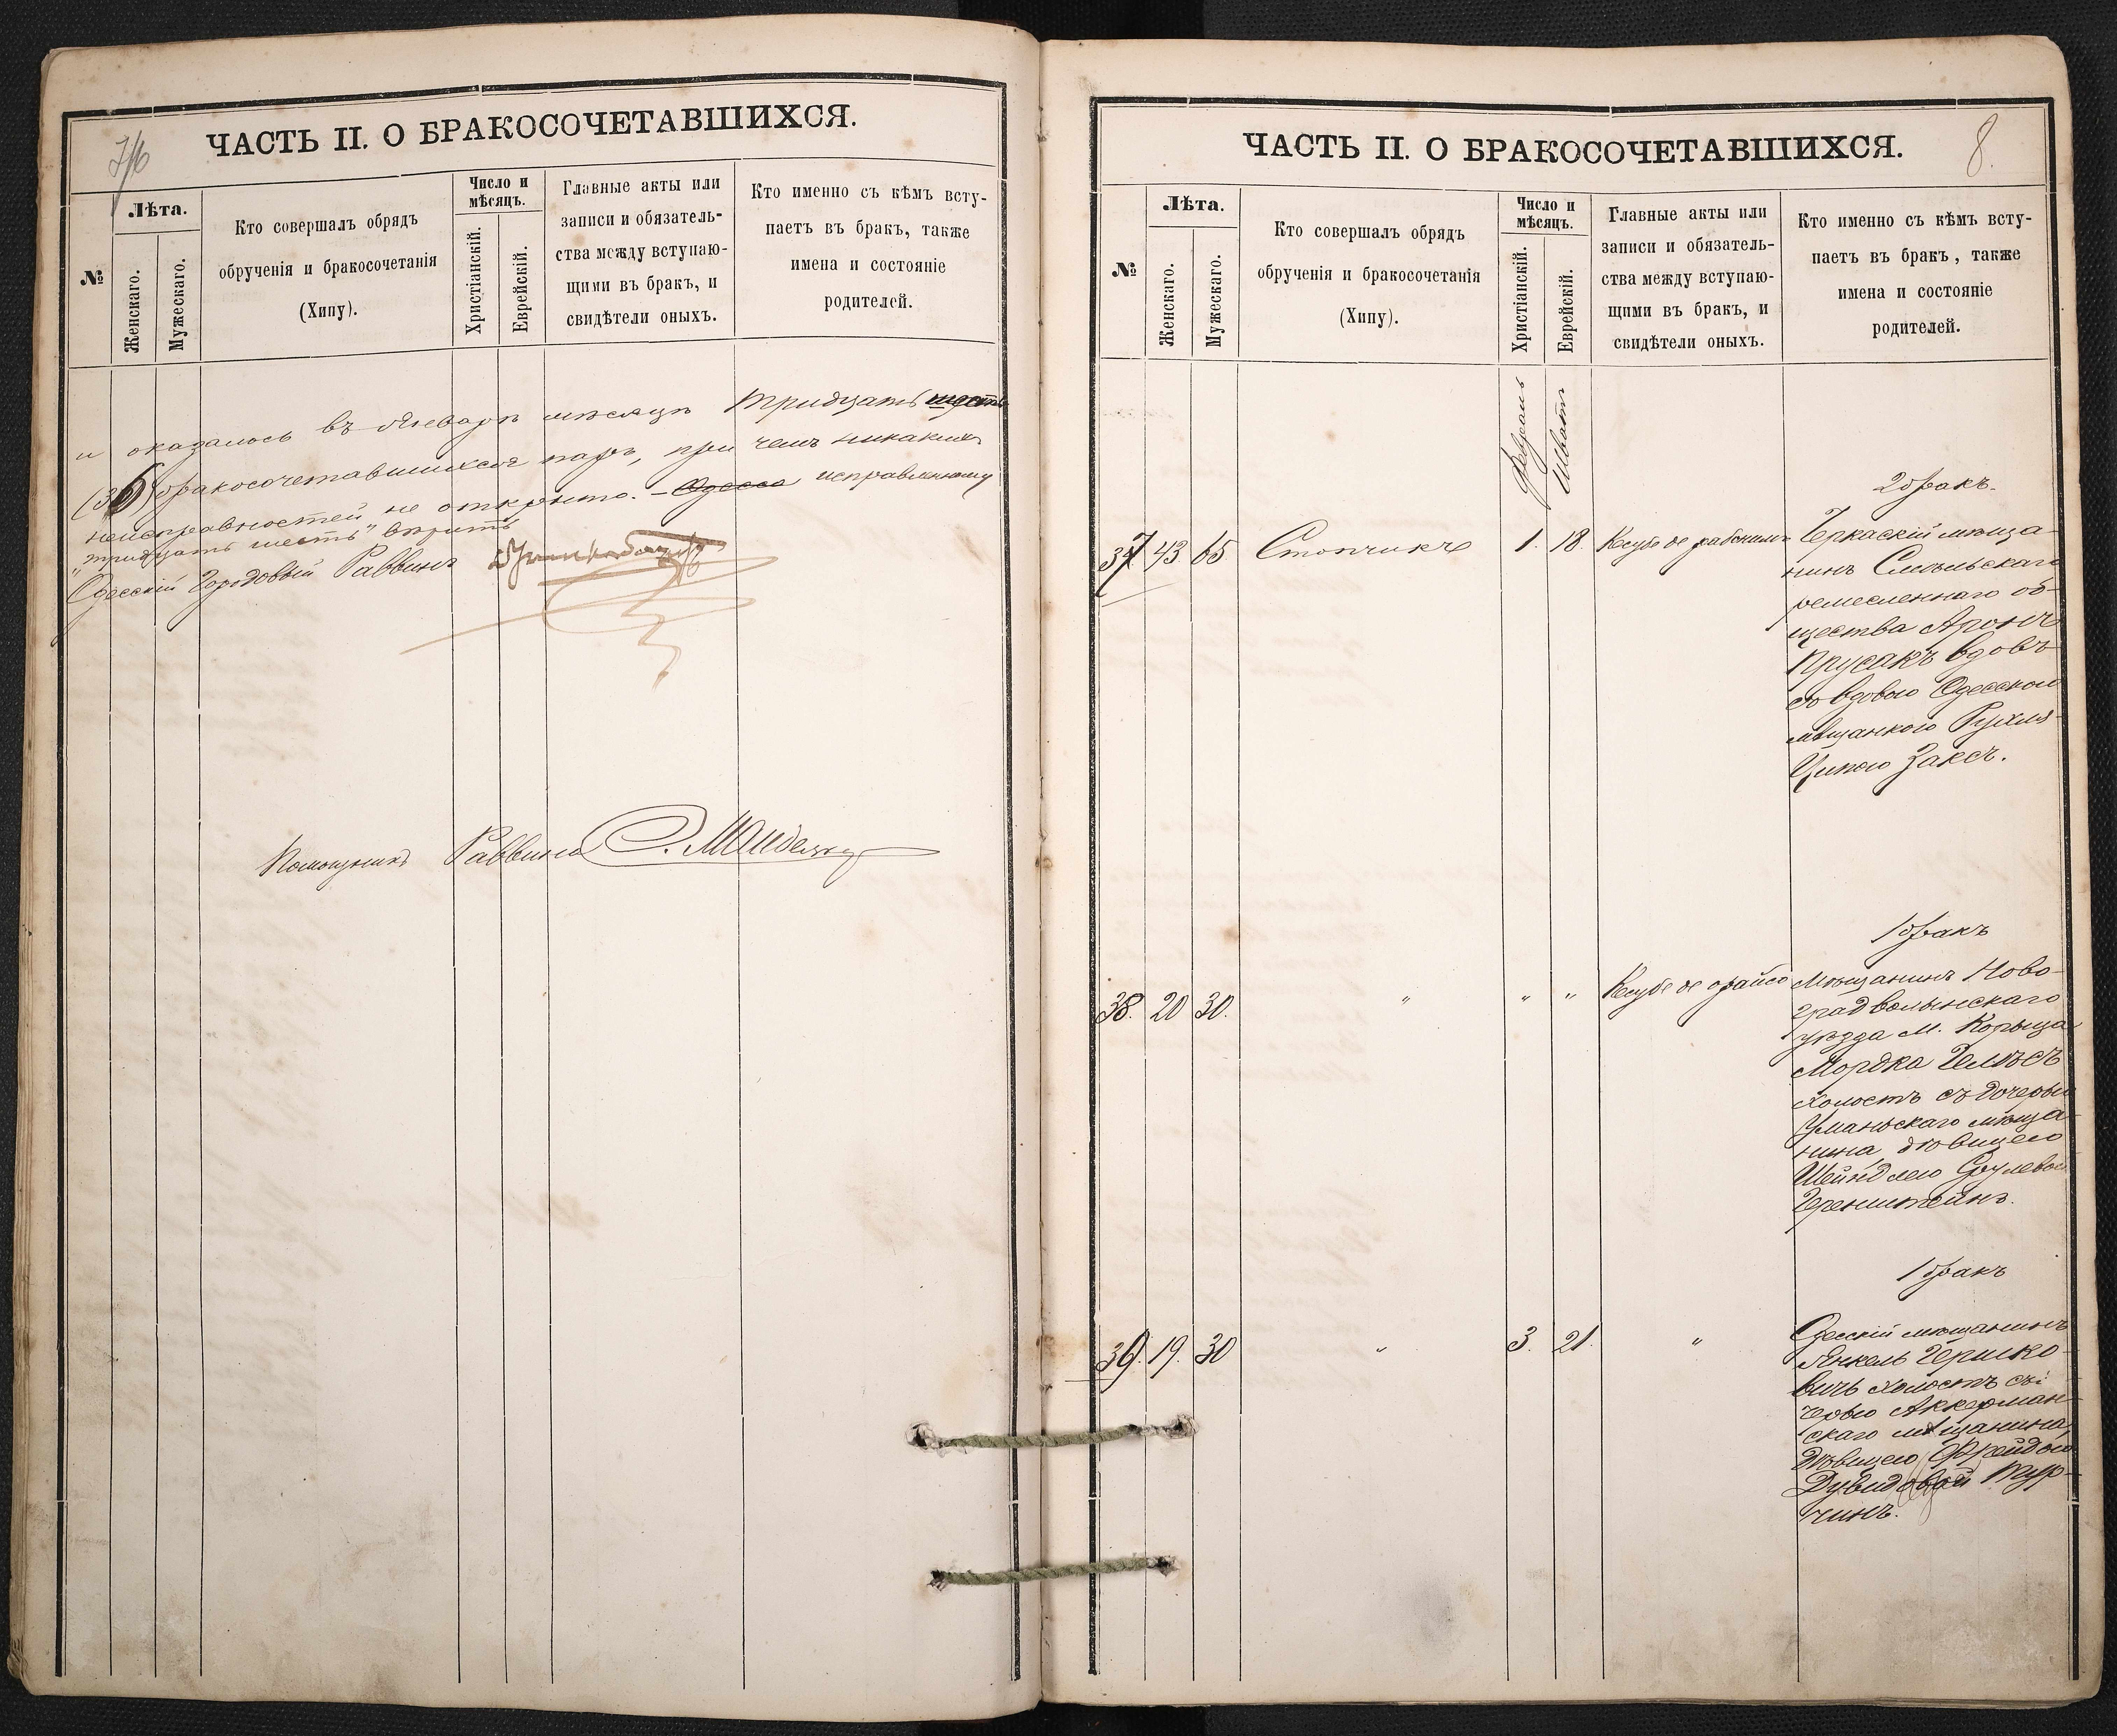 7/6
ЧАСТЬ II. О БРАКОСОЧЕТАВШИХСЯ.
№
Лѣта.
Женскаго.
Мужескаго.
Кто совершалъ обрядъ
обрученія и бракосочетанія
(Хипу).
Число и
мѣсяцъ.
Христіанскій.
Еврейскій.
Главные акты или
записи и обязатель-
ства между вступаю-
щими въ бракъ, и
свидѣтели оныхъ.
Кто именно съ кѣмъ всту-
паетъ въ бракъ, также
имена и состояніе
родителей.
и оказалось въ Январѣ мѣсяцѣ тридцать шесть
(36) бракосочетавшихся паръ, при чемъ никакихъ
неисправностей не открыто. – Одесса исправленному
"тридцать шесть" вѣрить
Одесскій Городовой Раввинъ
Помощникъ Раввина
ЧАСТЬ II. О БРАКОСОЧЕТАВШИХСЯ.
8.
№
Лѣта.
Женскаго.
Мужескаго.
Кто совершалъ обрядъ
обрученія и бракосочетанія
(Хипу).
Число и
мѣсяцъ.
Христіанскій.
Еврейскій.
Главные акты или
записи и обязатель-
ства между вступаю-
щими въ бракъ, и
свидѣтели оныхъ.
Кто именно съ кѣмъ всту-
паетъ въ бракъ, также
имена и состояніе
родителей.
Февраль
Шватъ
2 бракъ.
37 43. 65. Стопчикъ 1. 18. Ксубе де рабонимъ Черкаскій мѣща-
нинъ Смѣльскаго
ремесленнаго об-
щества Аронъ
Прусакъ вдовъ
со вдовою Одесскою
мѣщанкою Рухля-
Ципою Заксъ.
1 бракъ
38. 20 30. " " " Ксубе де орайсо Мѣщанинъ Ново-
градволынскаго
уѣзда м. Корыца
Мордка Гелъсъ
холостъ съ дочерью
Уманьскаго мѣща-
нина, дѣвицею
Шейндлею Срулевой
Геренштейнъ.
1 бракъ
39. 19. 30 " 3. 21. " Одесскій мѣщанинъ
Янкель Гершко-
вичъ холостъ съ
черью Аккерман-
скаго мѣщанина,
дѣвицею Фрейдою
Дувидовой Тур-
чинъ.